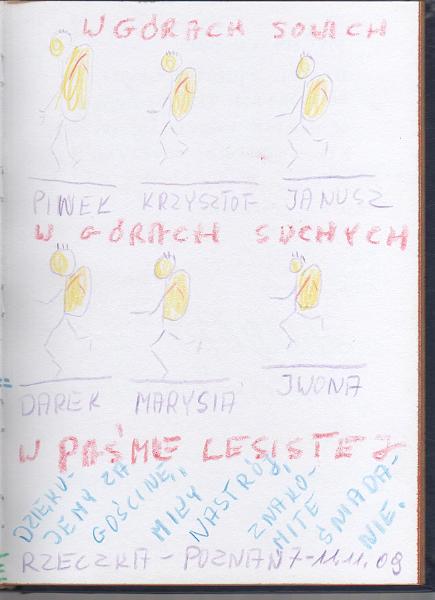 W GÓRACH SOWICH
PIWEK KRZYSZTOF JANUSZ
W GÓRACH SUCHYCH
DAREK MARYSIA IWONA
W PAŚMIE LESISTEJ
DZIĘKU-
JEMY ZA
GOŚCINĘ,
MIŁY
NASTRÓJ,
ZNAKO-
MITE
ŚNIADA-
NIE.
RZECZKA - POZNAŃ 7-11.11.09